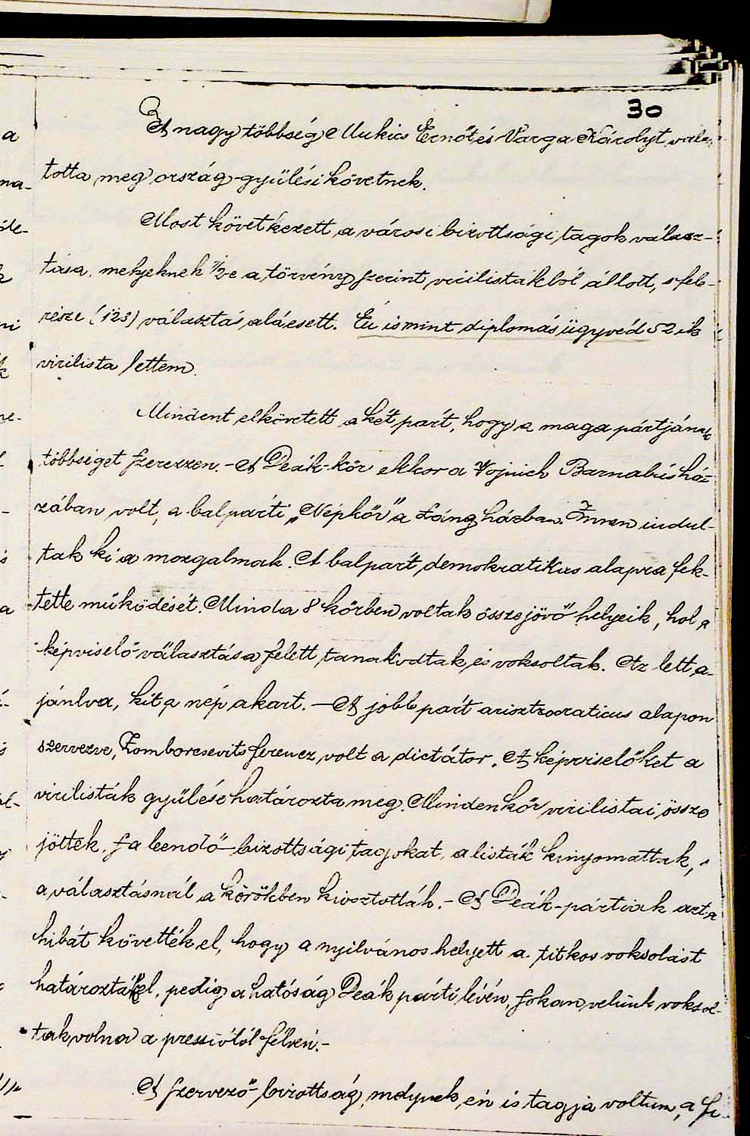 30
A nagy többség Mukics Ernőt és Varga Károlyt válasz-
totta meg ország-gyűlési követnek.
Most következett, a városi bizottsági tagok válasz-
tása, melyeknek ½-e a törvény szerint virilistákból állott, s fele
része (123) választás alá esett. Én is mint diplomás ügyvéd 52 ik
virilista lettem.
Mindent elkövetett a két párt, hogy a maga pártjának
többséget szerezzen. - A Deák-kör ekkor a Vojnich Barnabás há-
zában volt, a balpárti „Népkör" a Láng házban. Innen indul-
tak ki a mozgalmak. A balpárt, demokratikus alapra fek-
tette működését. Mind a 8 körben voltak összejövő helyeik, hol a
képviselő-választása felett, tanakodtak, és voksoltak. Az lett a-
jánlva, kit a nép akart. - A jobb párt arisztocraticus alapon
szervezve, Zomborcsevits ferencz, volt a dictátor. A képviselőket a
virilisták gyűlése határozta meg. Minden kör virilistai össze
jöttek, s a leendő bizottsági tagokat, a listák kinyomattak, s
a választásnál a körökben kiosztották. - A Deák-pártiak azt a
hibát követték el, hogy a nyilvános helyett a titkos voksolást
határozták el, pedig a hatóság Deák párti lévén, sokan velünk voksol-
tak volna a pressiótól félvén. -
A szervező-bizottság, melynek én is tagja voltam, a